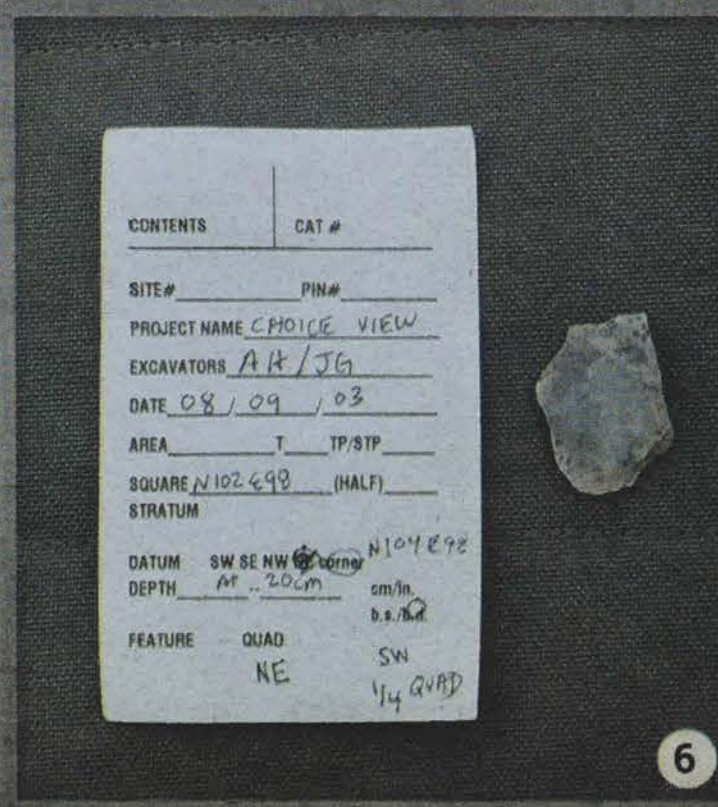 CONTENTS CAT #
SITE# PIN#
PROJECT NAME CHOICE VIEW
EXCAVATORS AH/JG
DATE 08 / 09 / 03
AREA T TP/STP
SQUARE N102 E98 (HALF)
STRATUM
DATUM SW SE NW corner N104 E98
DEPTH 20cm cm/in.
b.s./b.d.
FEATURE QUAD
NE SW
1/4 QUAD
6